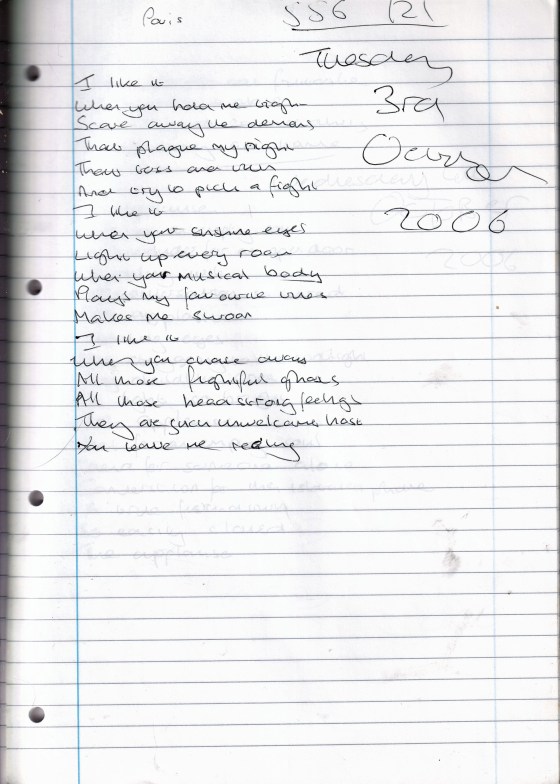 Paris
556 121
Tuesday
3rd
October
2006
I like it
When you hold me tight
Scare away the demons
That plague my night
That toss and turn
And try to pick a fight
I like it
When your sunshine eyes
Light up every room
When your musical body
Plays my favourite tunes
Makes me swoon
I like it
When you chase away
All those frightful ghosts
All those headstrong feelings
They are such unwelcome hosts
You leave me